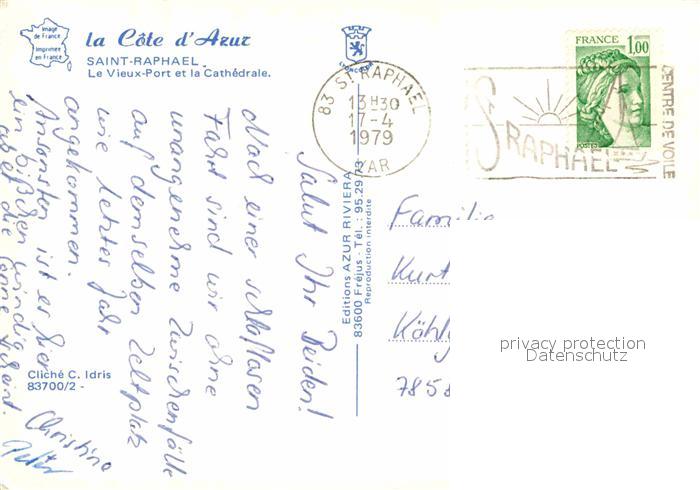 Image
de France
Imprimée
en France
la Côte d'Azur
SAINT-RAPHAEL
Le Vieux-Port et la Cathédrale.
LYONCOLOR
83 ST RAPHAEL
13H30
17-4
1979
VAR
FRANCE 1,00
POSTES
ST RAPHAEL
CENTRE DE VOILE
Salut Ihr Beiden!
Nach einer schlaflosen
Fahrt sind wir ohne
unangenehme Zwischenfälle
auf demselben Zeltplatz
wie letztes Jahr
angekommen.
Ansonsten ist es hier
ein bißchen windig
aber die Sonne scheint.
Christine
Peter
Editions AZUR RIVIERA
83600 Fréjus - Tél. : 95.29.73
Reproduction interdite
Familie
Kurt
785
privacy protection
Datenschutz
Cliché C. Idris
83700/2 -